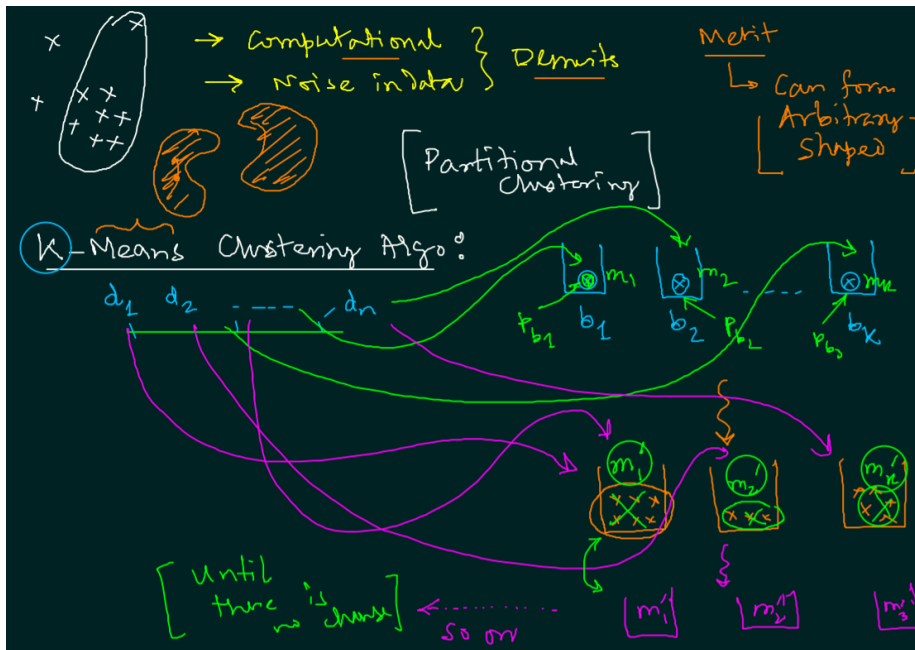 → Computational
→ Noise in data
Demerits
Merit
Can form
Arbitrary-
shaped
[Partitional
Clustering]
K-Means Clustering Algo:
d1 d2 ---- dn
m1 m2 ---- mk
Pb1 b1 b2 Pb2 Pb3 bk
m1' m2' mk'
[until
there is
no change]
so on
m1'' m2'' m3''